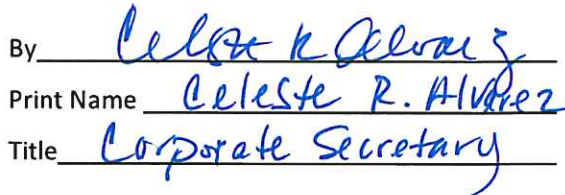 By Celeste R Alvarez
Print Name Celeste R. Alvarez
Title Corporate Secretary